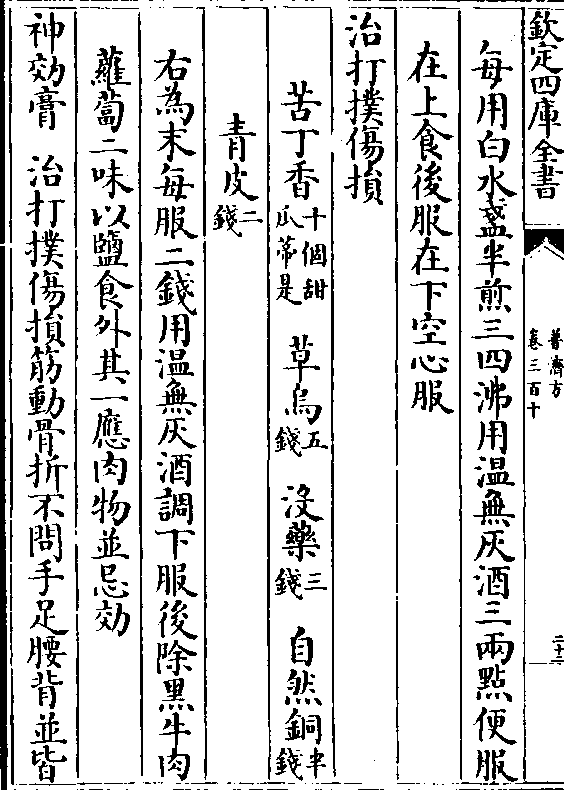 欽定四庫全書
普濟方
卷三百十
二十二
每用白水盞半煎三四沸用温無灰酒三兩點便服
在上食後服在下空心服
治打撲傷損
苦丁香十個甜瓜蒂是 草烏五錢 沒藥三錢 自然銅半錢
青皮二錢
右為末每服二錢用温無灰酒調下服後除黑牛肉
蘿蔔二味以鹽食外其一應肉物並忌効
神効膏 治打撲傷損筋動骨折不問手足腰背並皆